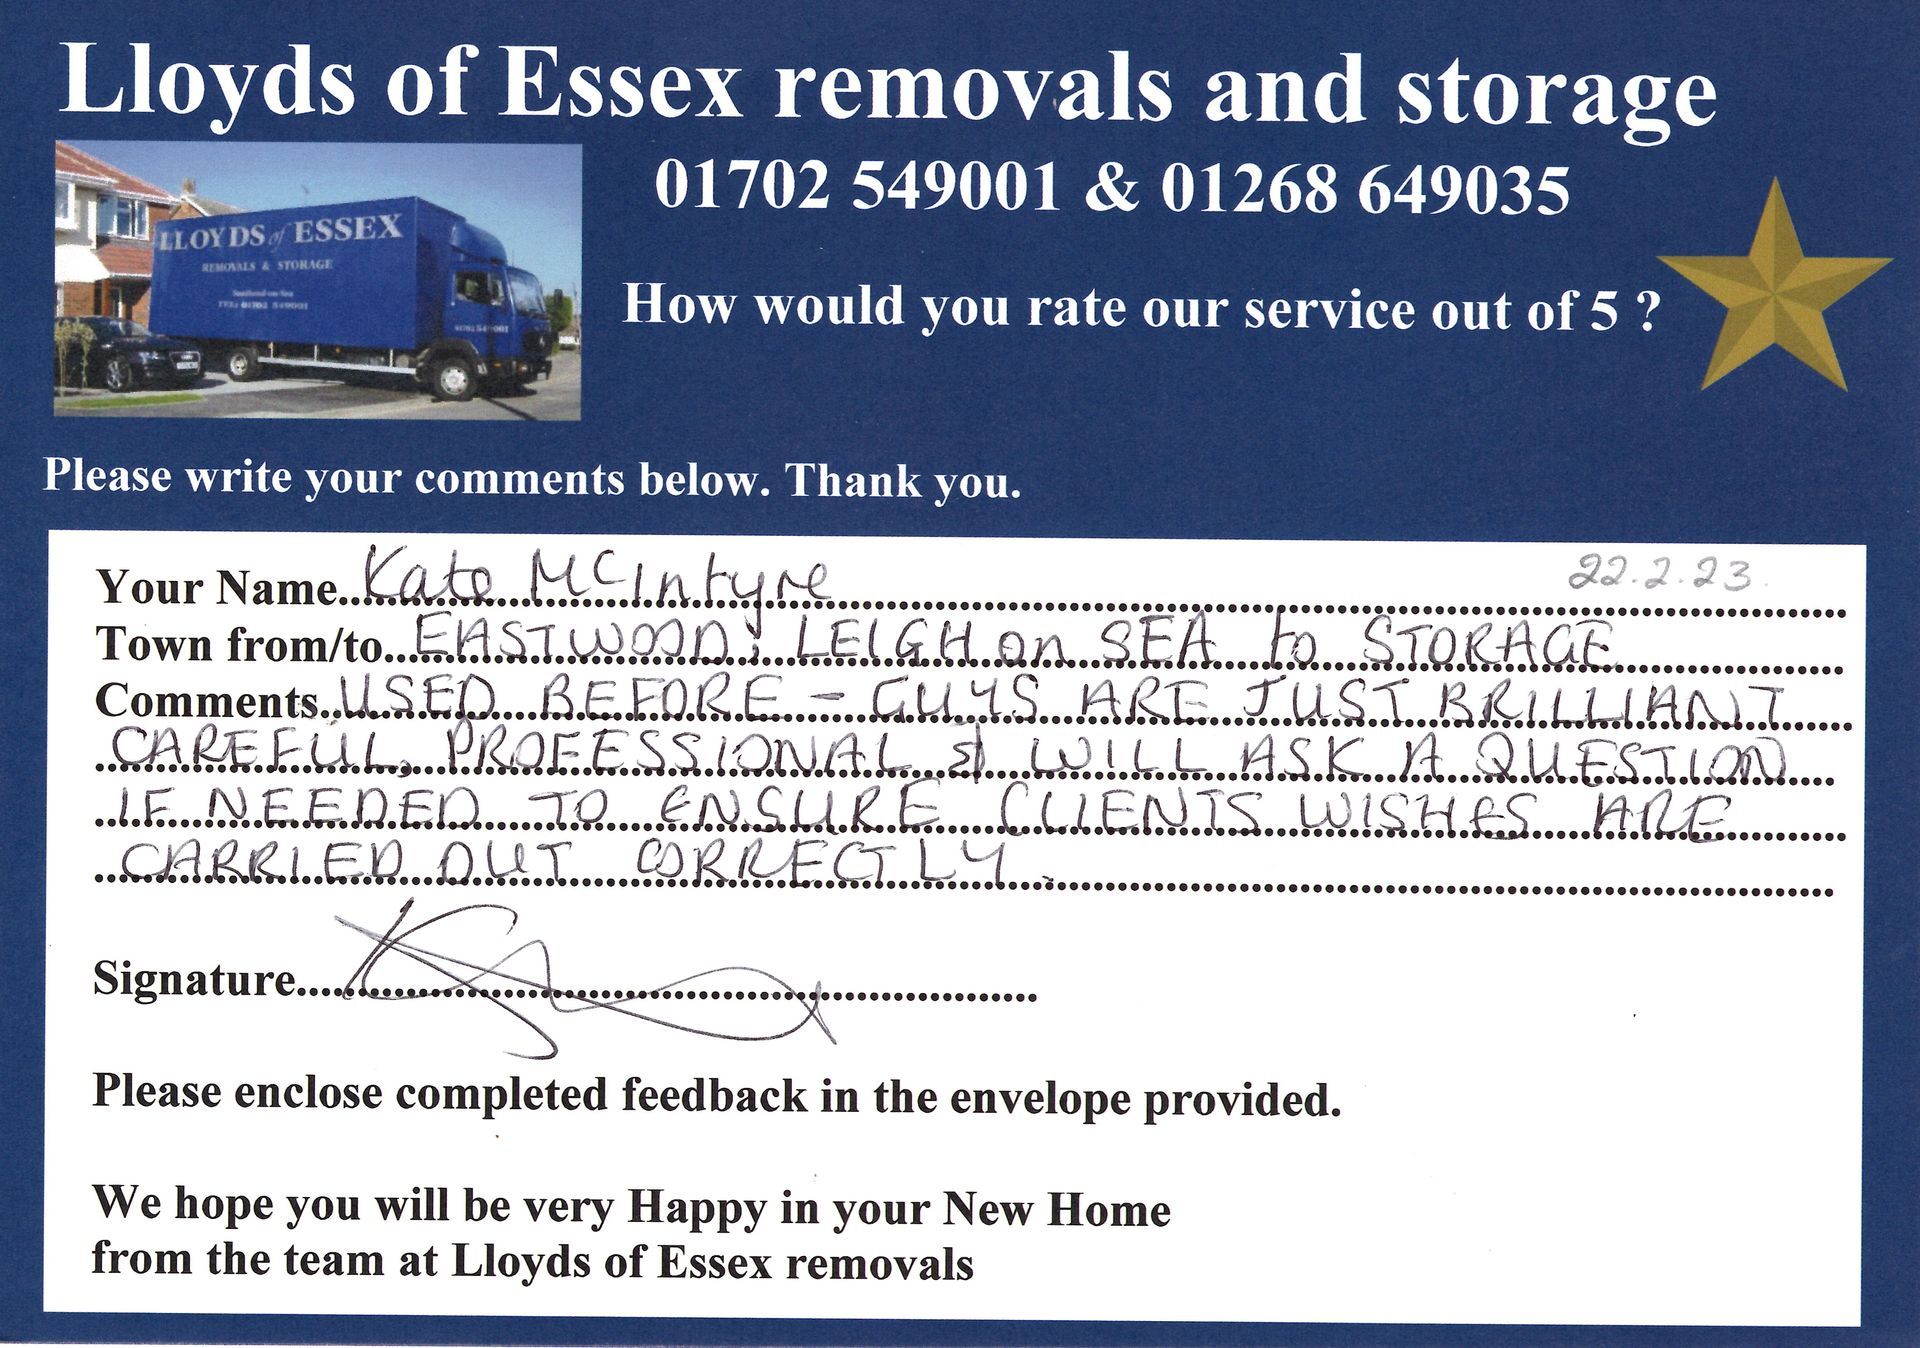 Lloyds of Essex removals and storage
01702 549001 & 01268 649035
LLOYDS of ESSEX
REMOVALS & STORAGE
Southend-on-Sea
TEL: 01702 549001
01702 549001
How would you rate our service out of 5 ?
Please write your comments below. Thank you.
22.2.23.
Your Name Kate McIntyre
Town from/to EASTWOOD, LEIGH on SEA to STORAGE
Comments USED BEFORE - GUYS ARE JUST BRILLIANT
CAREFUL, PROFESSIONAL & WILL ASK A QUESTION
IF NEEDED TO ENSURE CLIENTS WISHES ARE
CARRIED OUT CORRECTLY.
Signature
Please enclose completed feedback in the envelope provided.
We hope you will be very Happy in your New Home
from the team at Lloyds of Essex removals